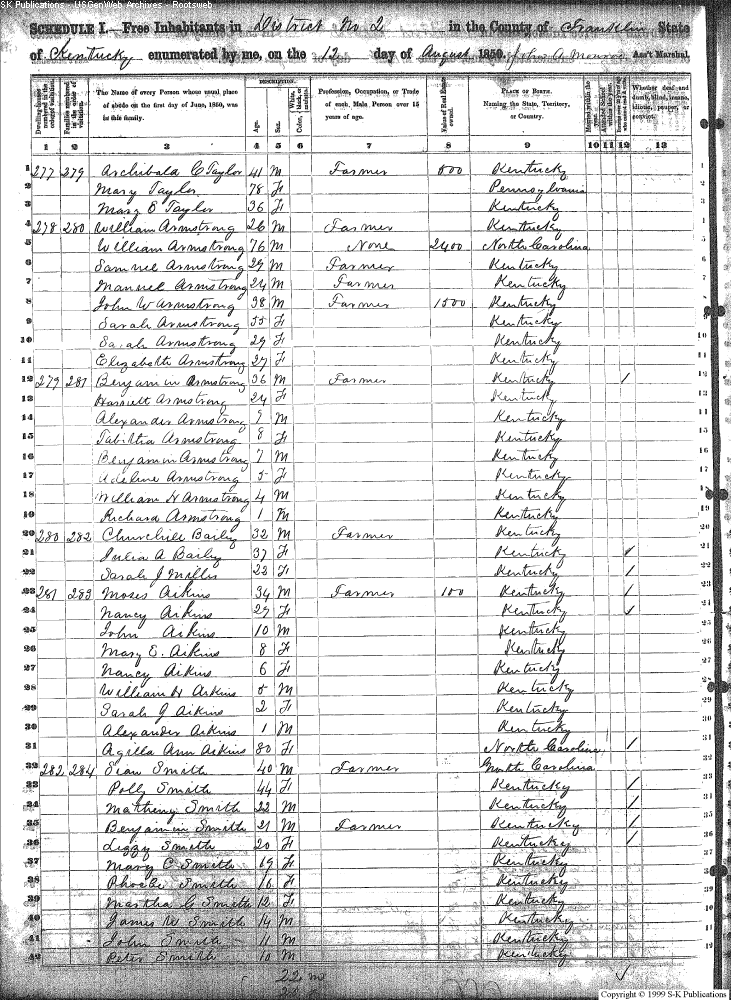 S-K Publications - USGenWeb Archives - Rootsweb
SCHEDULE I.—Free Inhabitants in District No 2 in the County of Franklin State
of Kentucky enumerated by me, on the 12 day of August 1850. John A Monroe Ass't Marshal.
Dwelling-houses numbered in the order of visitation.
Families numbered in the order of visitation.
The Name of every Person whose usual place of abode on the first day of June, 1850, was in this family.
DESCRIPTION.
Age.
Sex.
Color,
Profession, Occupation, or Trade of each Male Person over 15 years of age.
Value of Real Estate owned.
PLACE OF BIRTH. Naming the State, Territory, or Country.
Married within the year.
Attended School within the year.
Whether deaf and dumb, blind, insane, idiotic, pauper, or convict.
1 2 3 4 5 6 7 8 9 10 11 12 13
1 277 279 Archibald C Taylor 41 M Farmer 800 Kentucky
2 Mary Taylor 78 F Pennsylvania
3 Mary E Taylor 36 F Kentucky
4 278 280 William Armstrong 26 M Farmer Kentucky
5 William Armstrong 76 M None 2400 North Carolina
6 Samuel Armstrong 29 M Farmer Kentucky
7 Manuel Armstrong 24 M Farmer Kentucky
8 John W Armstrong 38 M Farmer 1500 Kentucky
9 Sarah Armstrong 55 F Kentucky
10 Sarah Armstrong 29 F Kentucky
11 Elizabeth Armstrong 27 F Kentucky
12 279 281 Benjamin Armstrong 36 M Farmer Kentucky /
13 Harriett Armstrong 24 F Kentucky
14 Alexander Armstrong 9 M Kentucky
15 Tabitha Armstrong 8 F Kentucky
16 Benjamin Armstrong 7 M Kentucky
17 Adeline Armstrong 5 F Kentucky
18 William H Armstrong 4 M Kentucky
19 Richard Armstrong 1 M Kentucky
20 280 282 Churchill Baily 32 M Farmer Kentucky
21 Julia A Baily 37 F Kentucky /
22 Sarah J Miller 22 F Kentucky /
23 281 283 Moses Aikins 34 M Farmer 100 Kentucky /
24 Nancy Aikins 29 F Kentucky /
25 John Aikins 10 M Kentucky
26 Mary E. Aikins 8 F Kentucky
27 Nancy Aikins 6 F Kentucky
28 William H Aikins 5 M Kentucky
29 Sarah J Aikins 2 F Kentucky
30 Alexander Aikins 1 M Kentucky
31 Agilla Ann Aikins 80 F North Carolina /
32 282 284 Sian Smith 40 M Farmer North Carolina
33 Polly Smith 44 F Kentucky /
34 Matheny Smith 22 M Kentucky /
35 Benjamin Smith 21 M Farmer Kentucky /
36 Lizzy Smith 20 F Kentucky /
37 Mary C Smith 19 F Kentucky
38 Phoebe Smith 16 F Kentucky
39 Martha C Smith 12 F Kentucky
40 James W Smith 14 M Kentucky
41 John Smith 11 M Kentucky
42 Peter Smith 10 M Kentucky
22 m
Copyright © 1999 S-K Publications